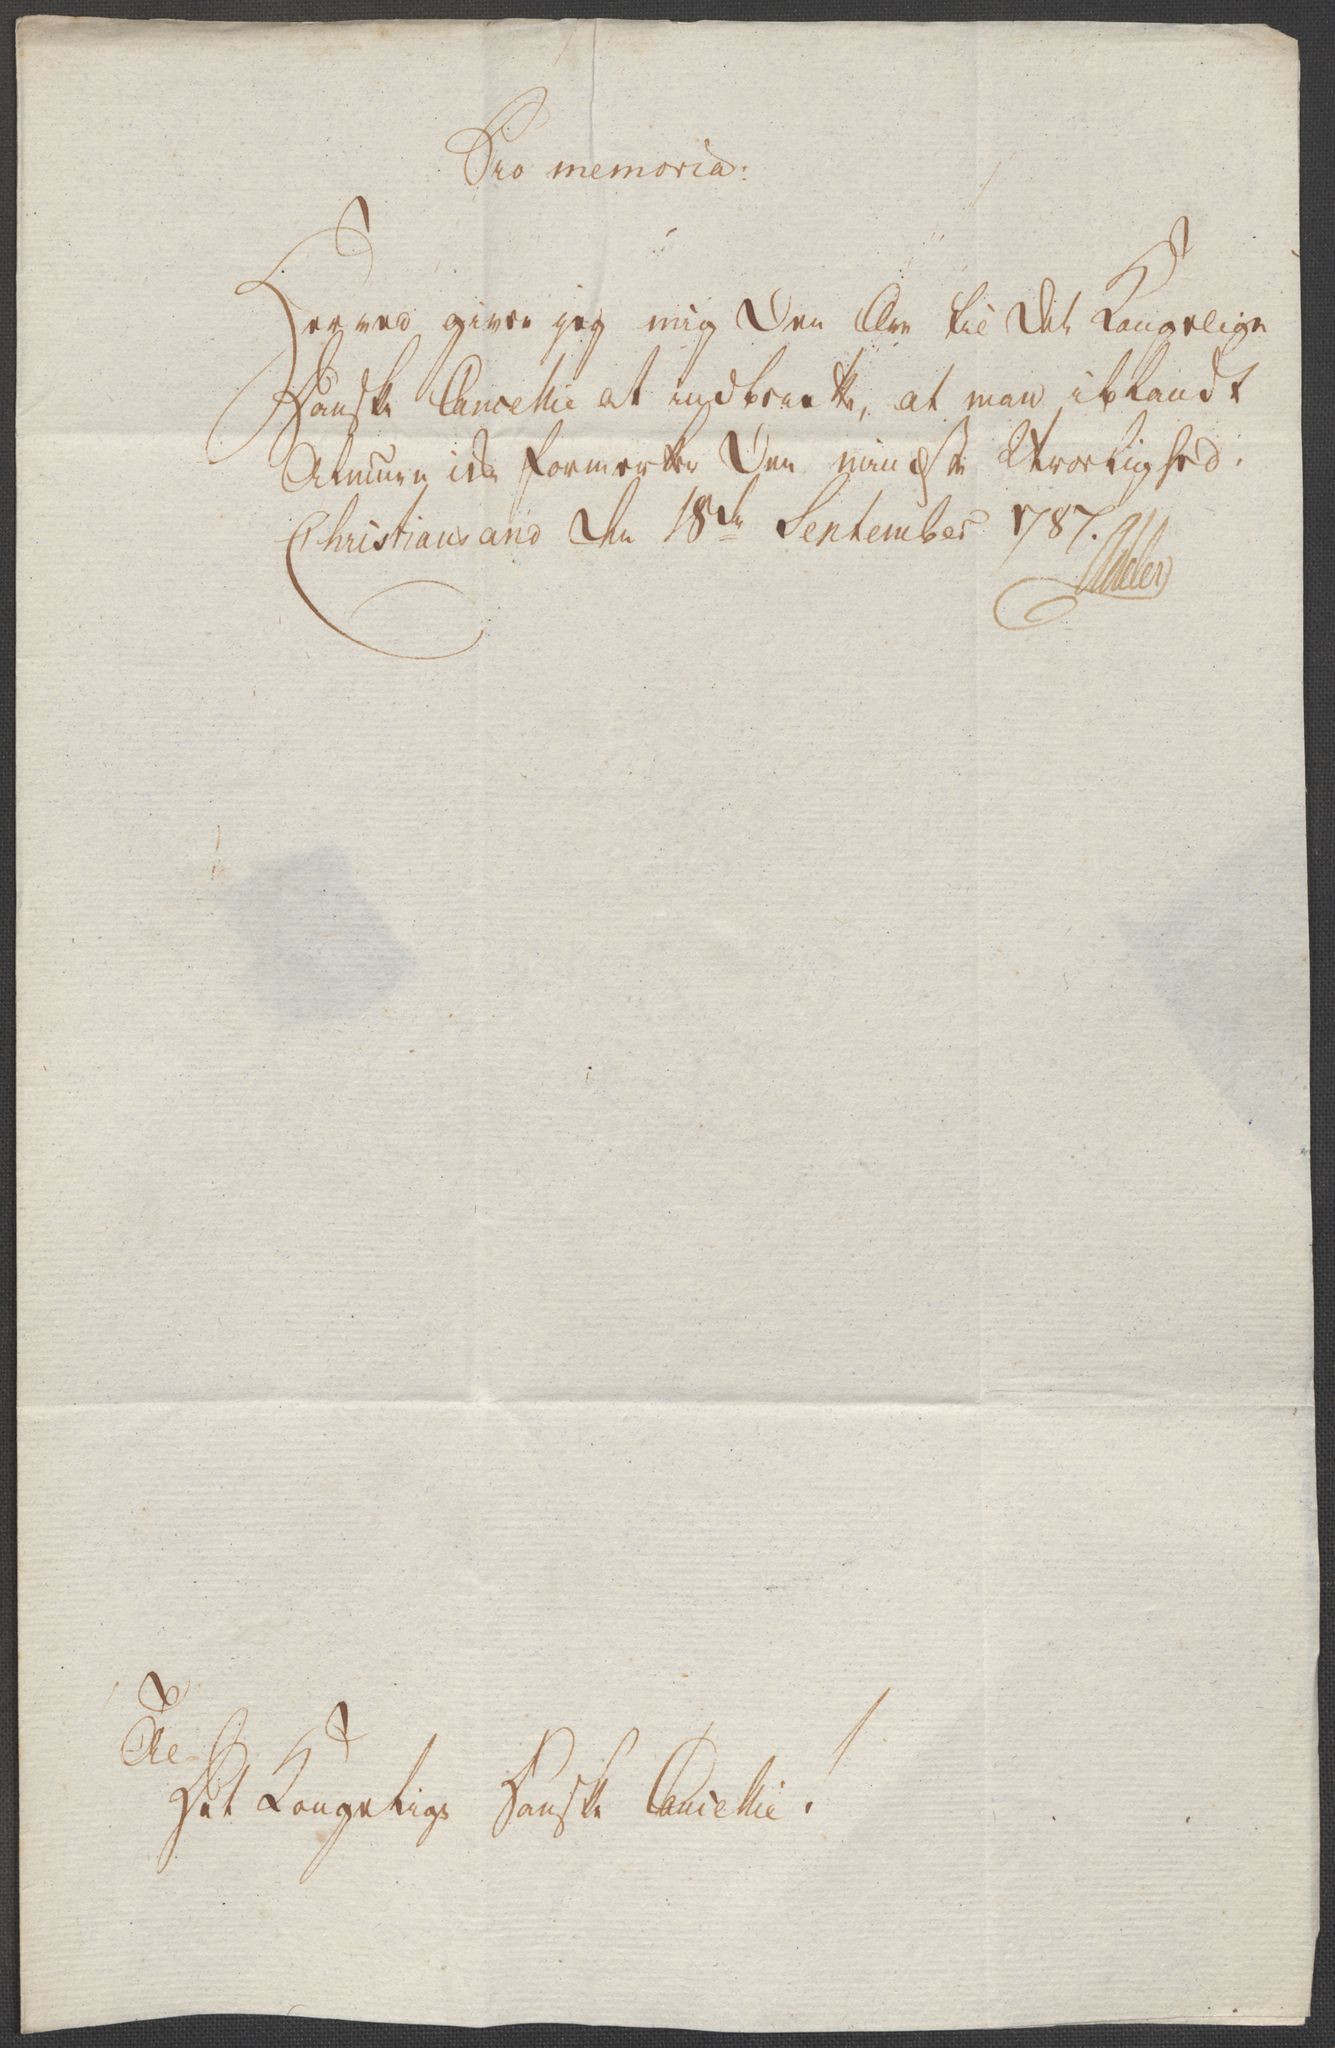 Pro memoria:
Herved giver jeg mig Den Ære til Det Kongelige
Danske Cancellie at indberette, at man iblandt
Almuen icke formerker Den mindste Uroelighed.
Christiansand den 18de September 1787.
Adeler
Til
Det Kongelige Danske Cancellie.